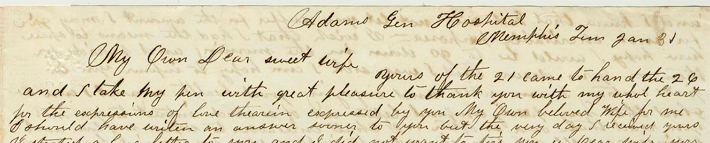 Adams Gen Hospital
Memphis Ten Jan 31
My Own Dear sweet wife
yours of the 21 came to hand the 26
and I take my pen with great pleasure to thank you with my whol heart
for the expressions of love therein expressed by you My Own beloved Wife for me
I should have writen an answer sooner to your but the very day I received yours
I started a long letter to you and I did not want to